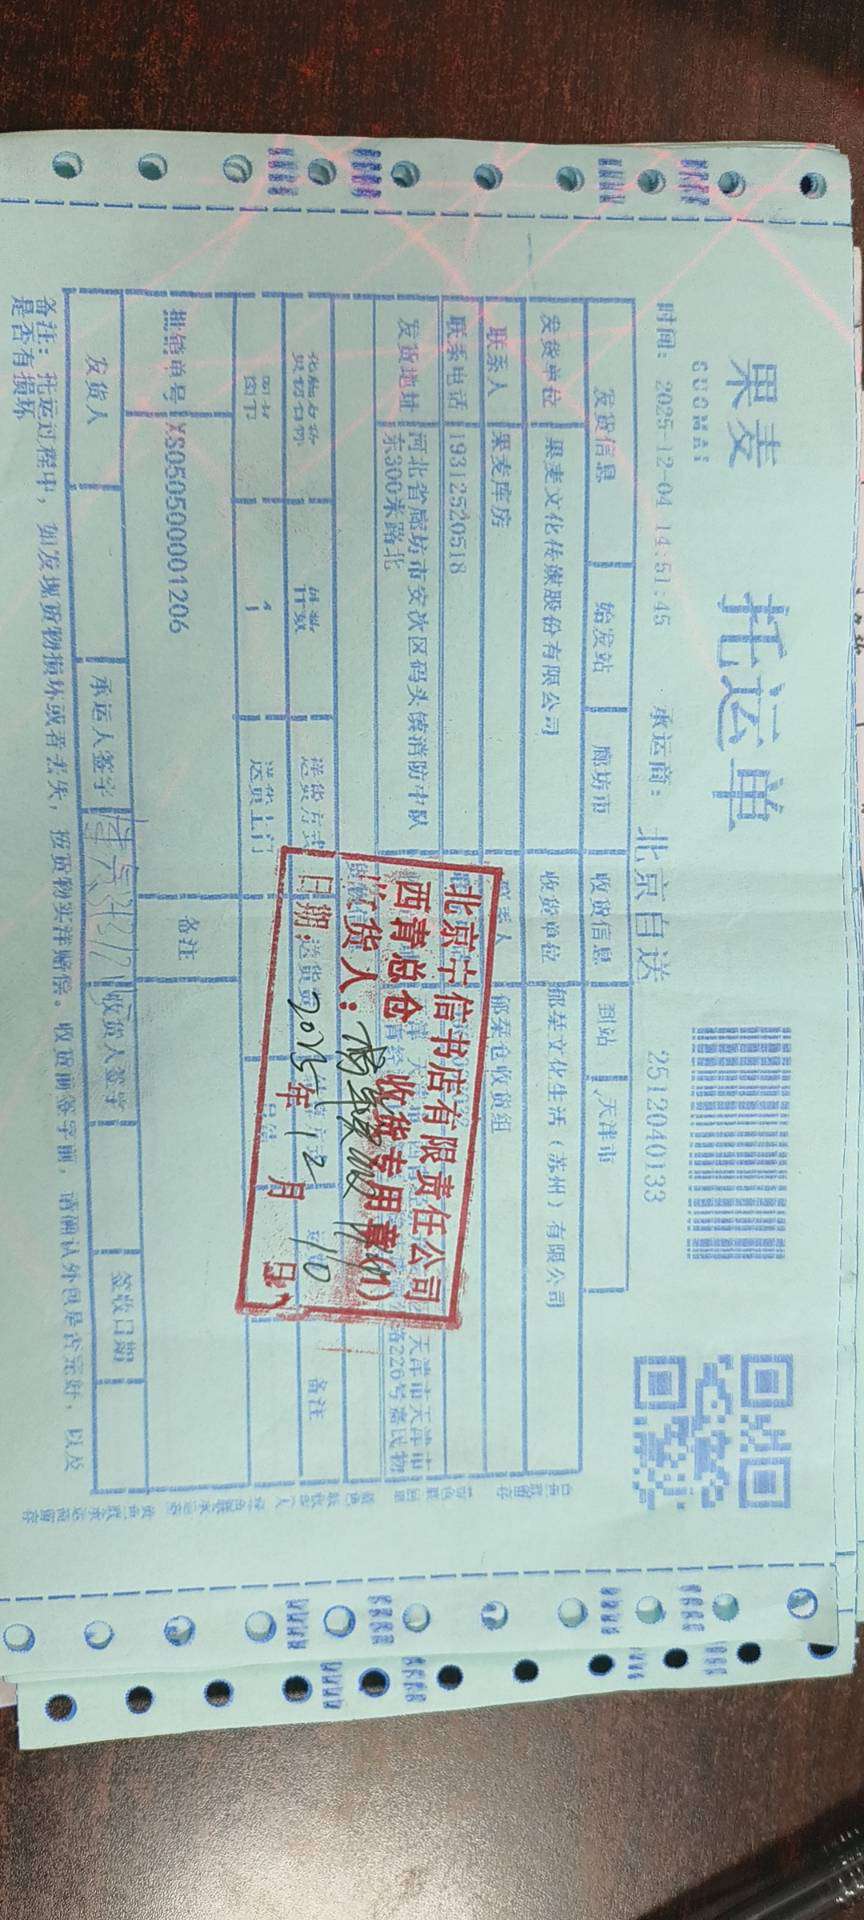 果麦
GUOMAI
托运单
时间：2025-12-04 14:51:45 承运商：北京自送 2512040133
发货信息 始发站 廊坊市 收货信息 到站 天津市
发货单位 果麦文化传媒股份有限公司 收货单位 郁栞文化生活（苏州）有限公司
联系人 果麦库房 联系人 郁栞仓收货组
联系电话 19312520518
发货地址 河北省廊坊市安次区码头镇消防中队
东300米路北
天津市天津市
路226号嘉民物
货物名称 件数 送货方式 备注
图书 1 送货上门
批销单号 XS0505000001206 备注
发货人 承运人签字 收货人签字 签收日期
备注：托运过程中，如发现货物损坏或者丢失，按货物实洋赔偿。收货前签字前，请确认外包是否完好，以及
是否有损坏
北京中信书店有限责任公司
西青总仓 收货专用章(1)
收货人：
日期：2025年12月10日